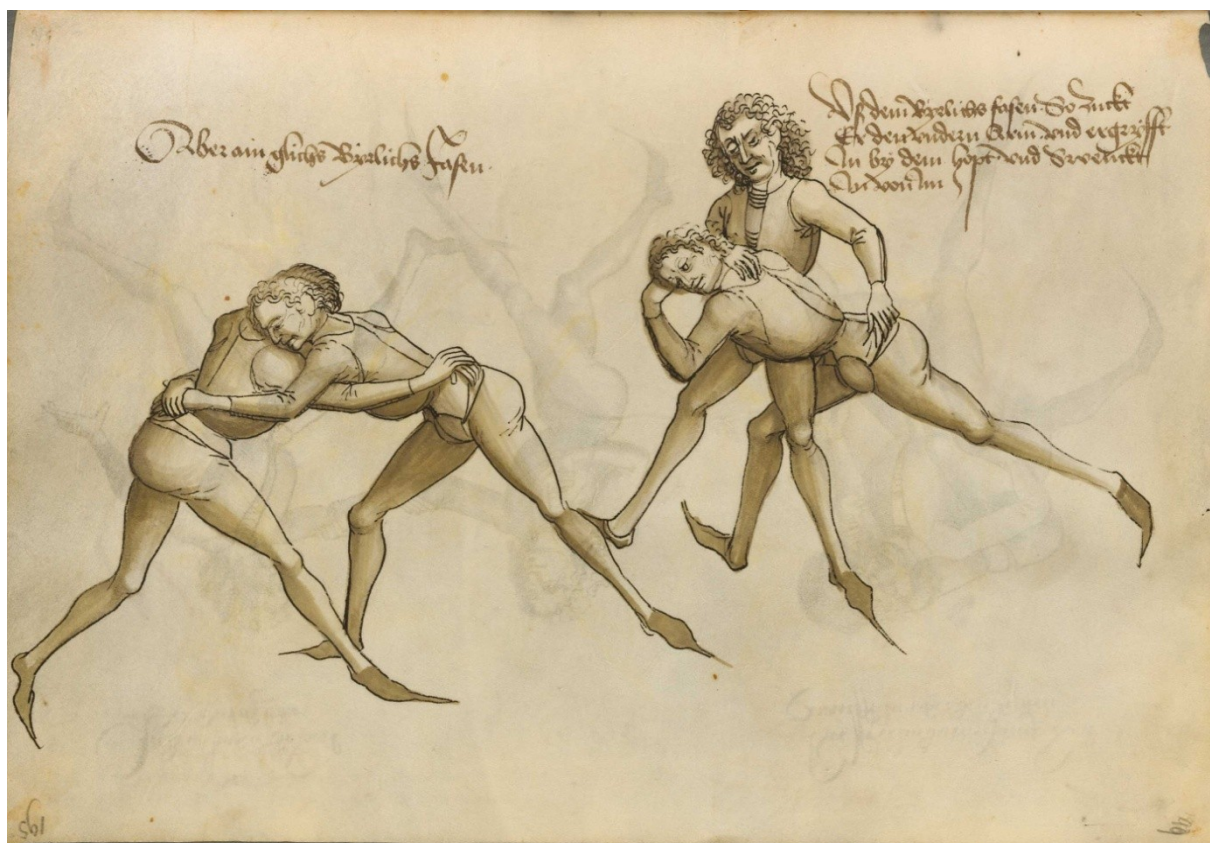 Aber ain glichs Byrlichs fasen.
Vs dem Byrlichs fasen. So zuckt
Er den vndern Arm. vnd ergryfft
In by dem hopt. vnd Swenckt
In von im
195